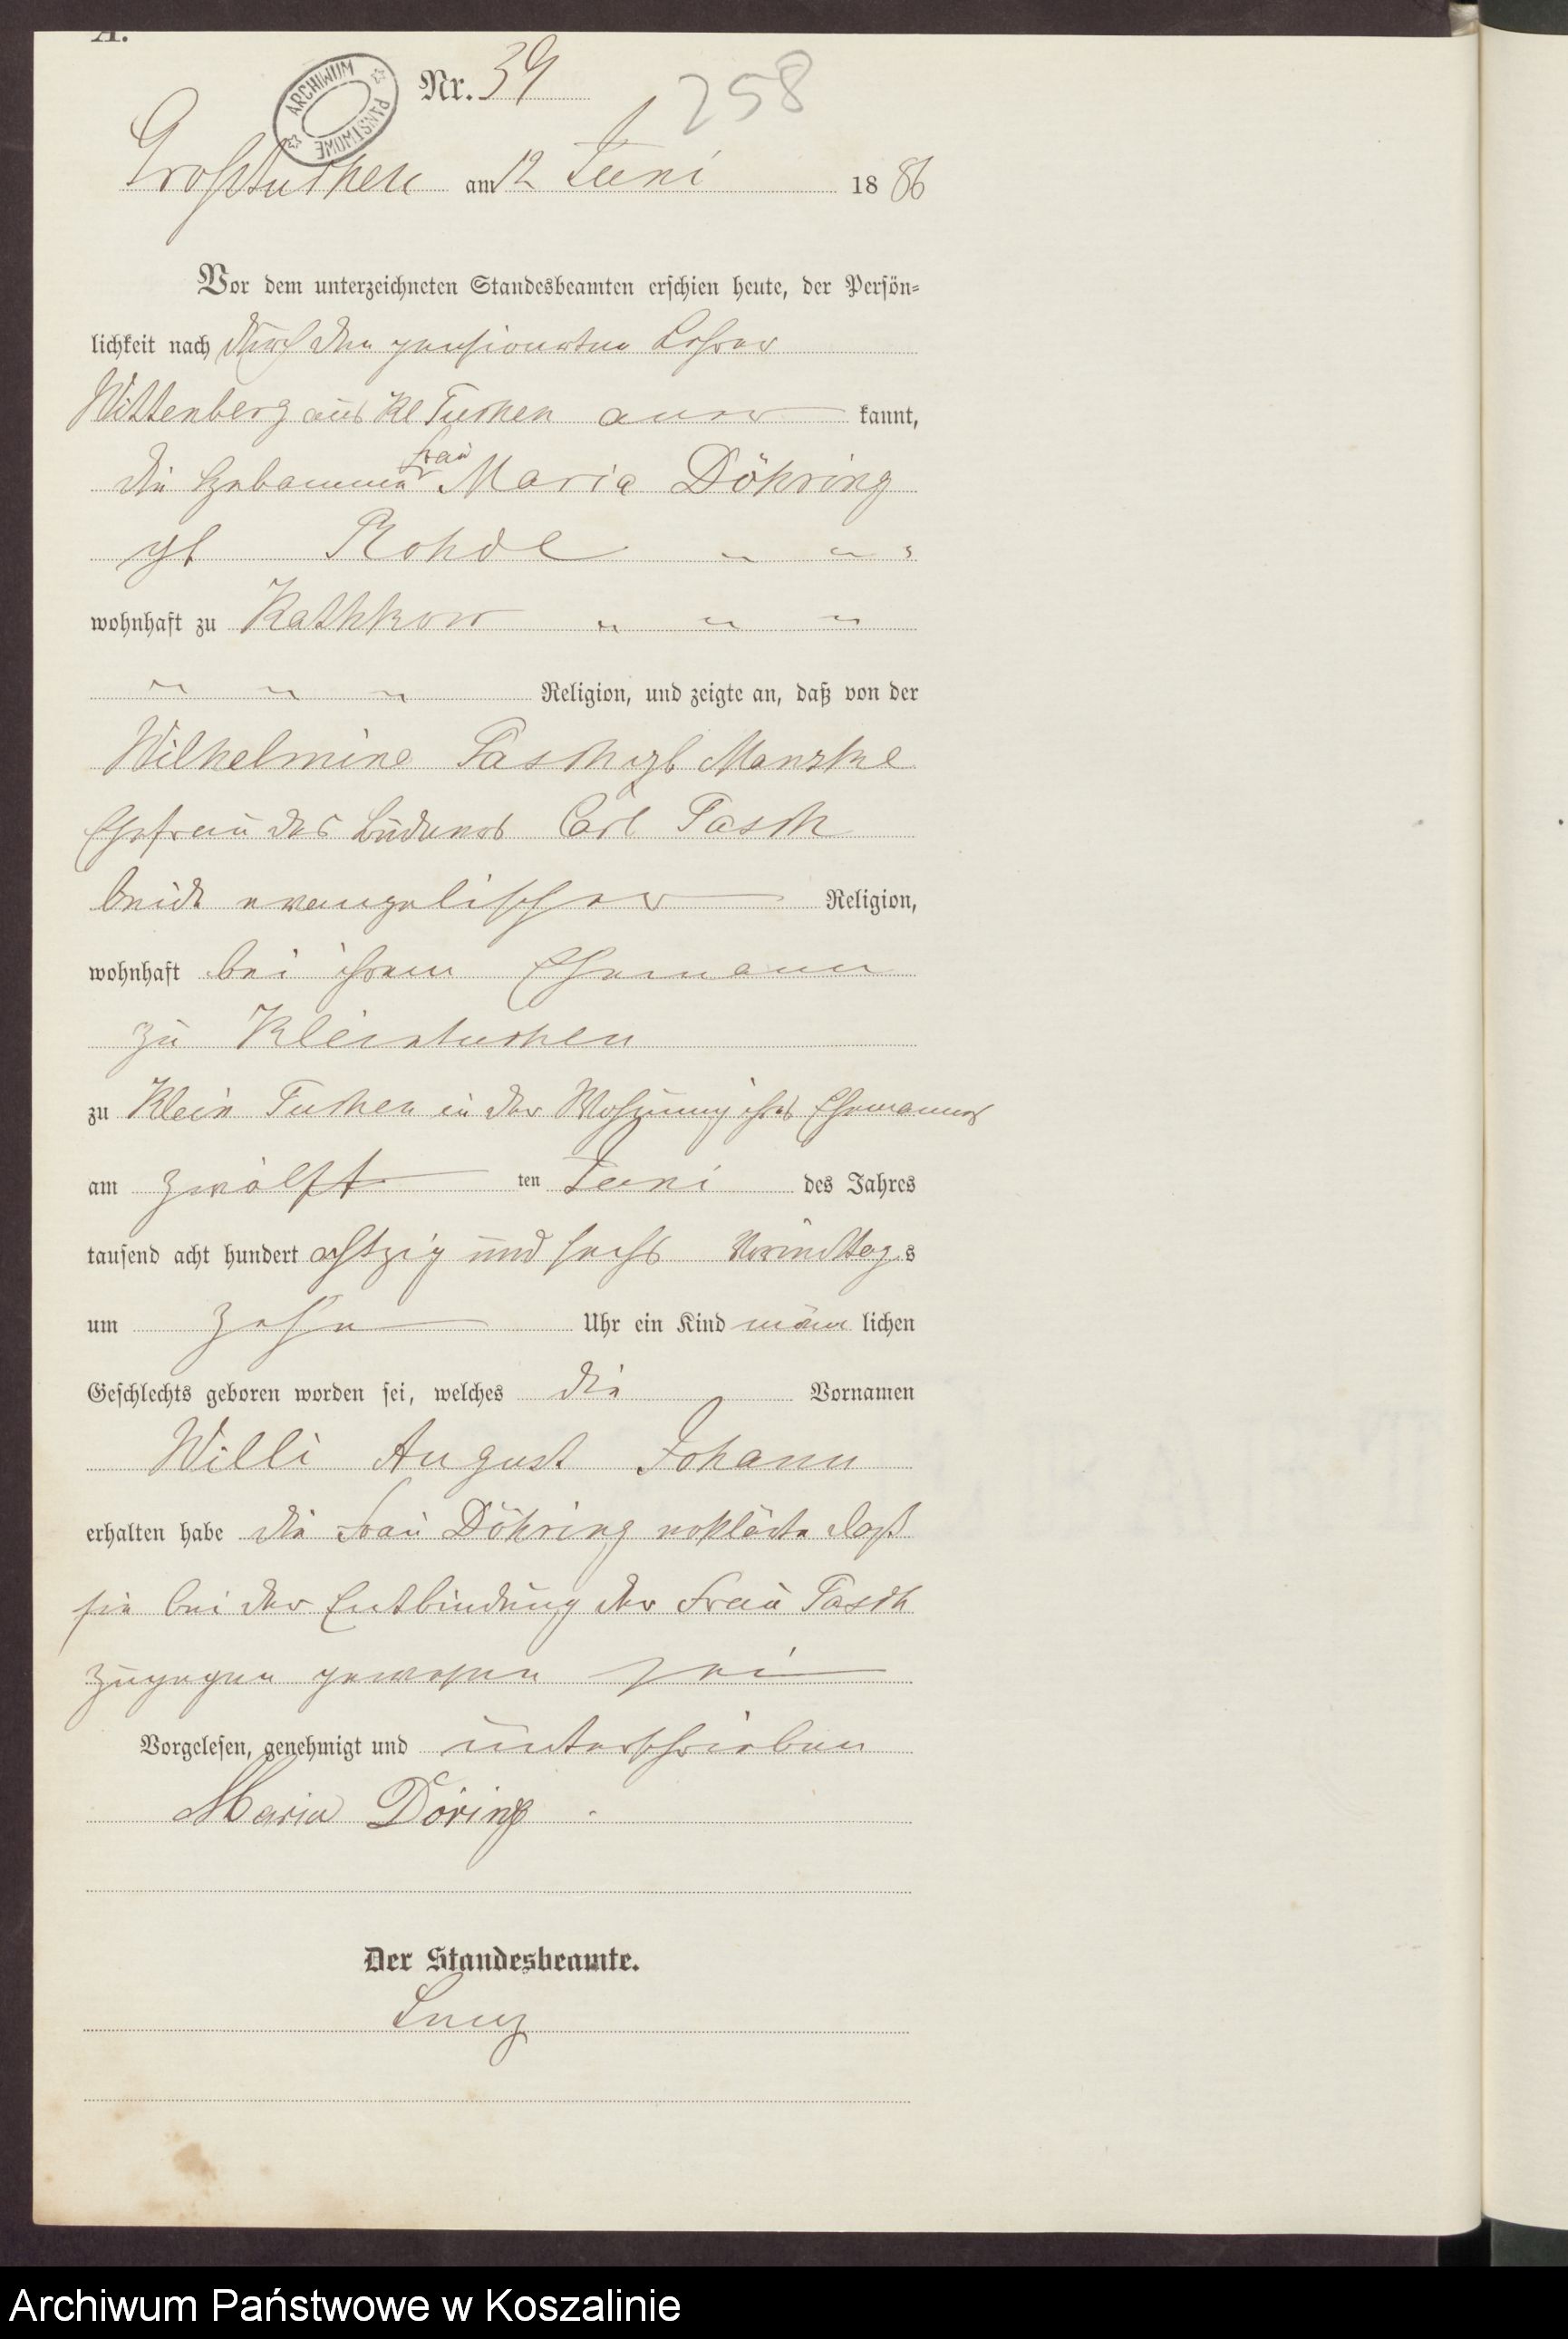 A.
ARCHIWUM PAŃSTWOWE
Nr. 39
258
Großtuchen am 12 Juni 1886
Vor dem unterzeichneten Standesbeamten erschien heute, der Persön-
lichkeit nach durch den pensionirten Lehrer
Wittenberg aus Kl Tuchen aner kannt,
Frau
die Hebamme Maria Döhring
gb Rohde " " "
wohnhaft zu Kathkow " " "
" " " Religion, und zeigte an, daß von der
Wilhelmine Pasch gb Manzke
Ehefrau des Büdners Carl Pasch
beide evangelischer Religion,
wohnhaft bei ihrem Ehemann
zu Kleintuchen
zu Klein Tuchen in der Wohnung ihres Ehemannes
am zwölft ten Juni des Jahres
tausend acht hundert achtzig und sechs Vormittag s
um zehn Uhr ein Kind männ lichen
Geschlechts geboren worden sei, welches die Vornamen
Willi August Johann
erhalten habe die Frau Döhring erklärte daß
sie bei der Entbindung der Frau Pasch
zugegen gewesen sei
Vorgelesen, genehmigt und unterschrieben
Maria Döring
Der Standesbeamte.
Archiwum Państwowe w Koszalinie